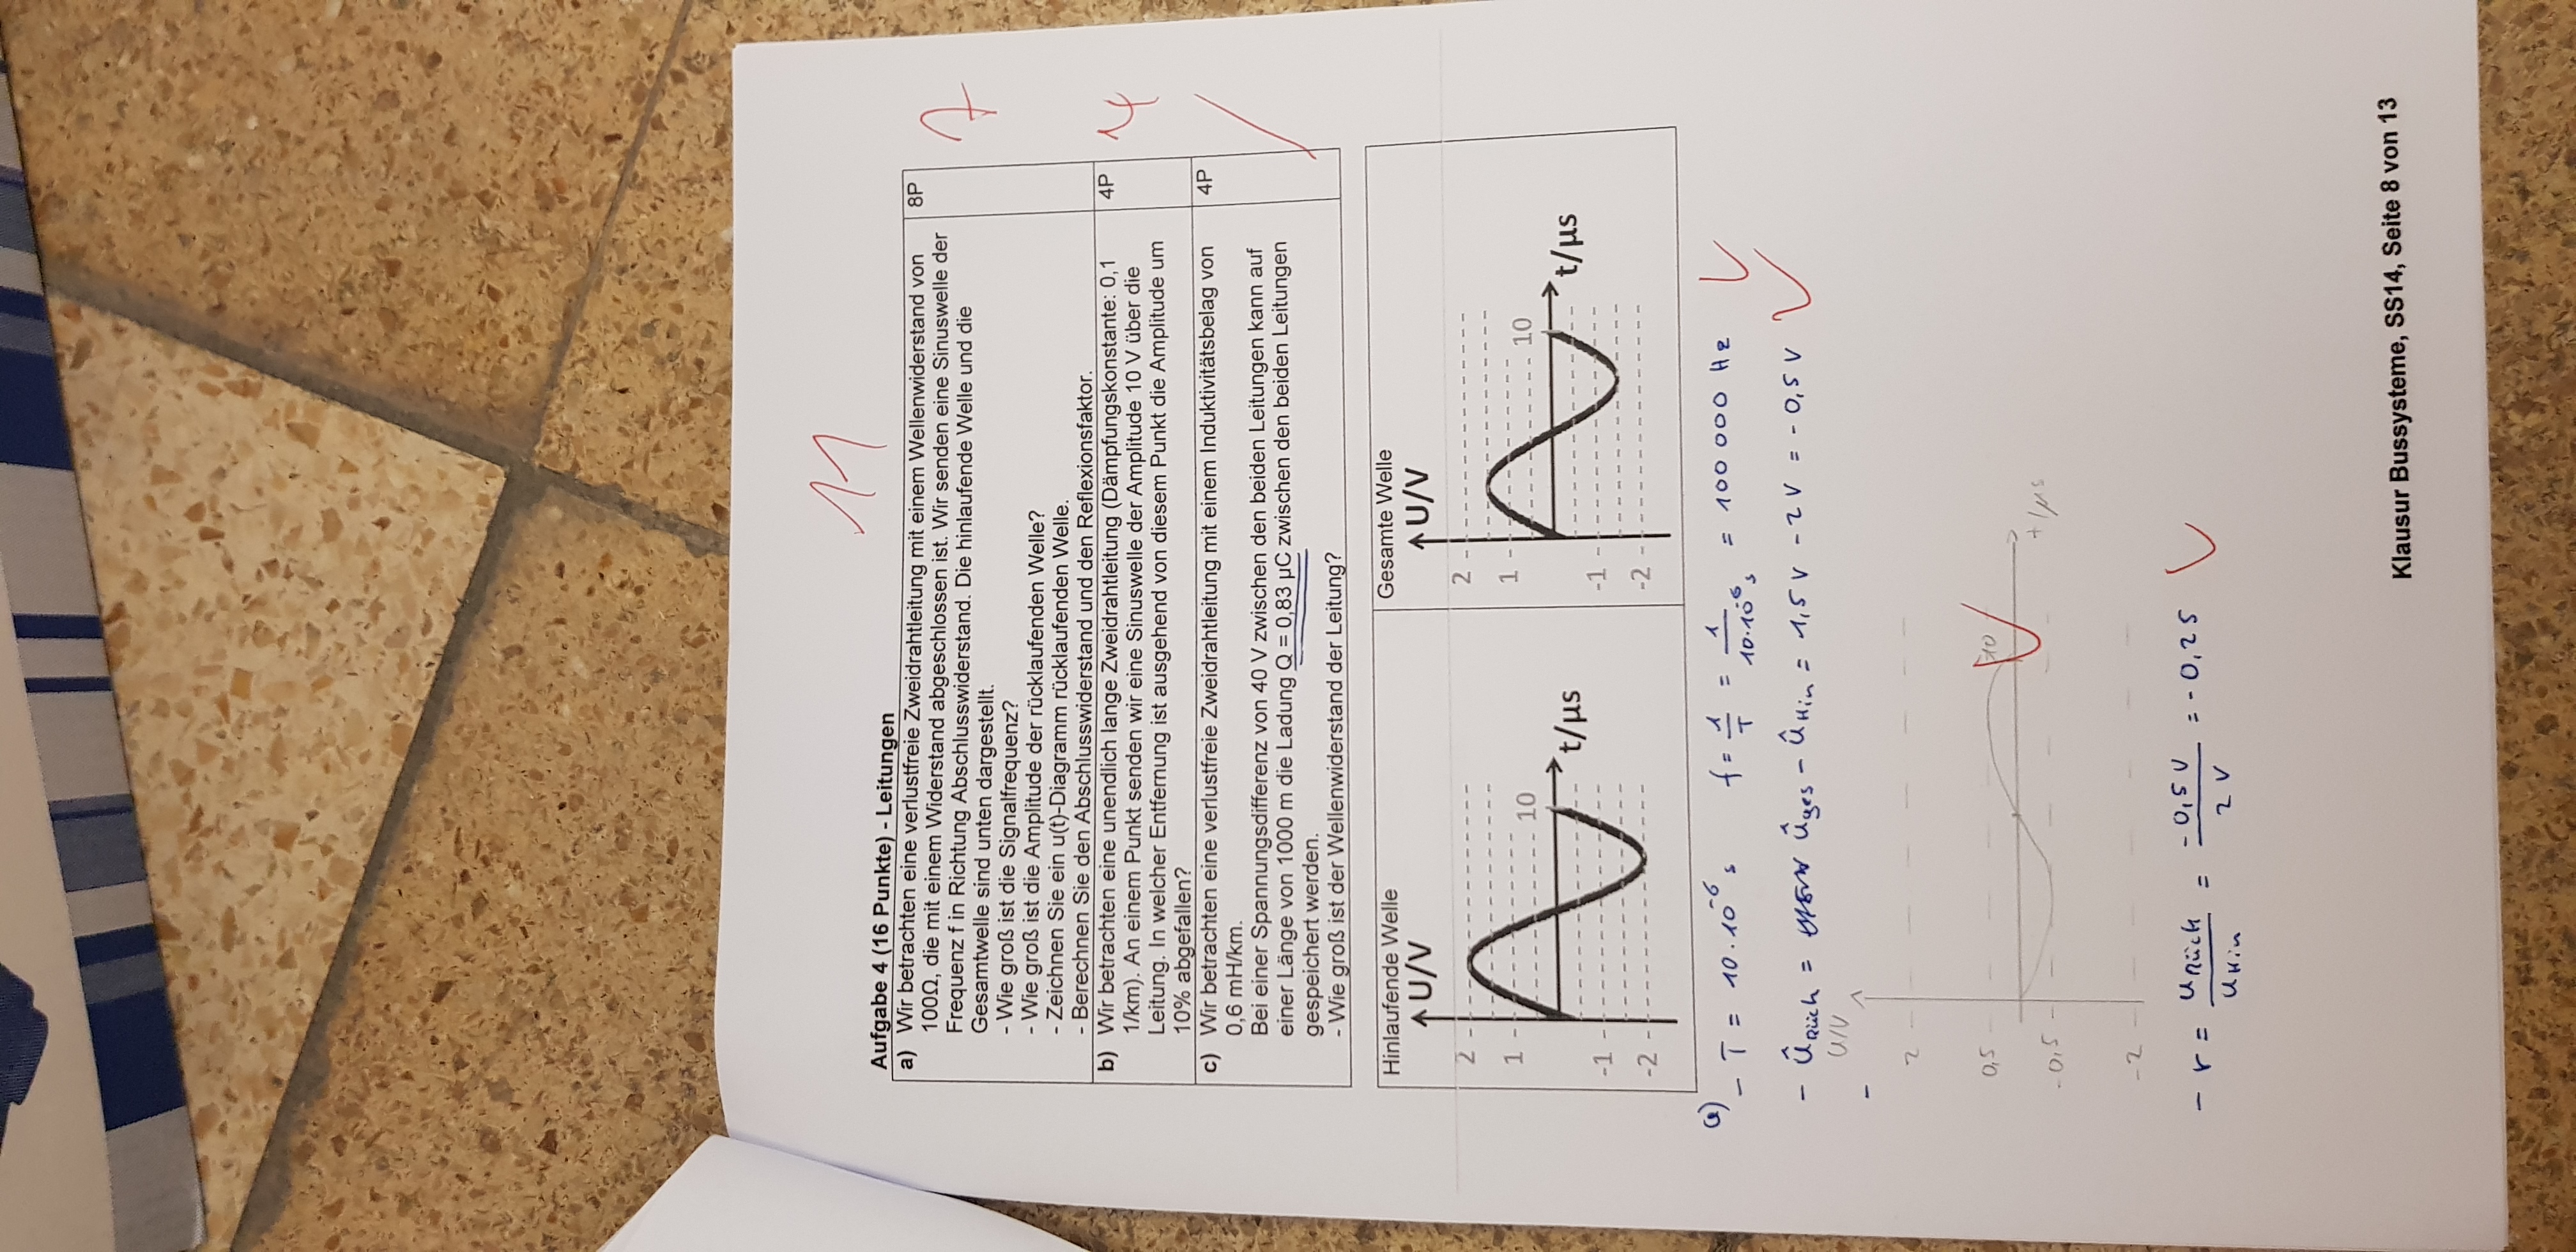 11
Aufgabe 4 (16 Punkte) - Leitungen
a) Wir betrachten eine verlustfreie Zweidrahtleitung mit einem Wellenwiderstand von 8P
100Ω, die mit einem Widerstand abgeschlossen ist. Wir senden eine Sinuswelle der 7
Frequenz f in Richtung Abschlusswiderstand. Die hinlaufende Welle und die
Gesamtwelle sind unten dargestellt.
- Wie groß ist die Signalfrequenz?
- Wie groß ist die Amplitude der rücklaufenden Welle?
- Zeichnen Sie ein u(t)-Diagramm rücklaufenden Welle.
- Berechnen Sie den Abschlusswiderstand und den Reflexionsfaktor.
b) Wir betrachten eine unendlich lange Zweidrahtleitung (Dämpfungskonstante: 0,1 4P 4
1/km). An einem Punkt senden wir eine Sinuswelle der Amplitude 10 V über die
Leitung. In welcher Entfernung ist ausgehend von diesem Punkt die Amplitude um
10% abgefallen?
c) Wir betrachten eine verlustfreie Zweidrahtleitung mit einem Induktivitätsbelag von 4P
0,6 mH/km.
Bei einer Spannungsdifferenz von 40 V zwischen den beiden Leitungen kann auf
einer Länge von 1000 m die Ladung Q = 0,83 µC zwischen den beiden Leitungen
gespeichert werden.
- Wie groß ist der Wellenwiderstand der Leitung?
Hinlaufende Welle
U/V
2
1
10
t/µs
-1
-2
Gesamte Welle
U/V
2
1
10
t/µs
-1
-2
a)
- T = 10·10⁻⁶ s f = 1/T = 1/10·10⁻⁶s = 100 000 Hz
- ûRück = ûges - ûHin = 1,5 V - 2 V = - 0,5 V
U/V
-
2
0,5 10
t/µs
-0,5
-2
- r = uRück/uHin = -0,5 V/2 V = - 0,25
Klausur Bussysteme, SS14, Seite 8 von 13